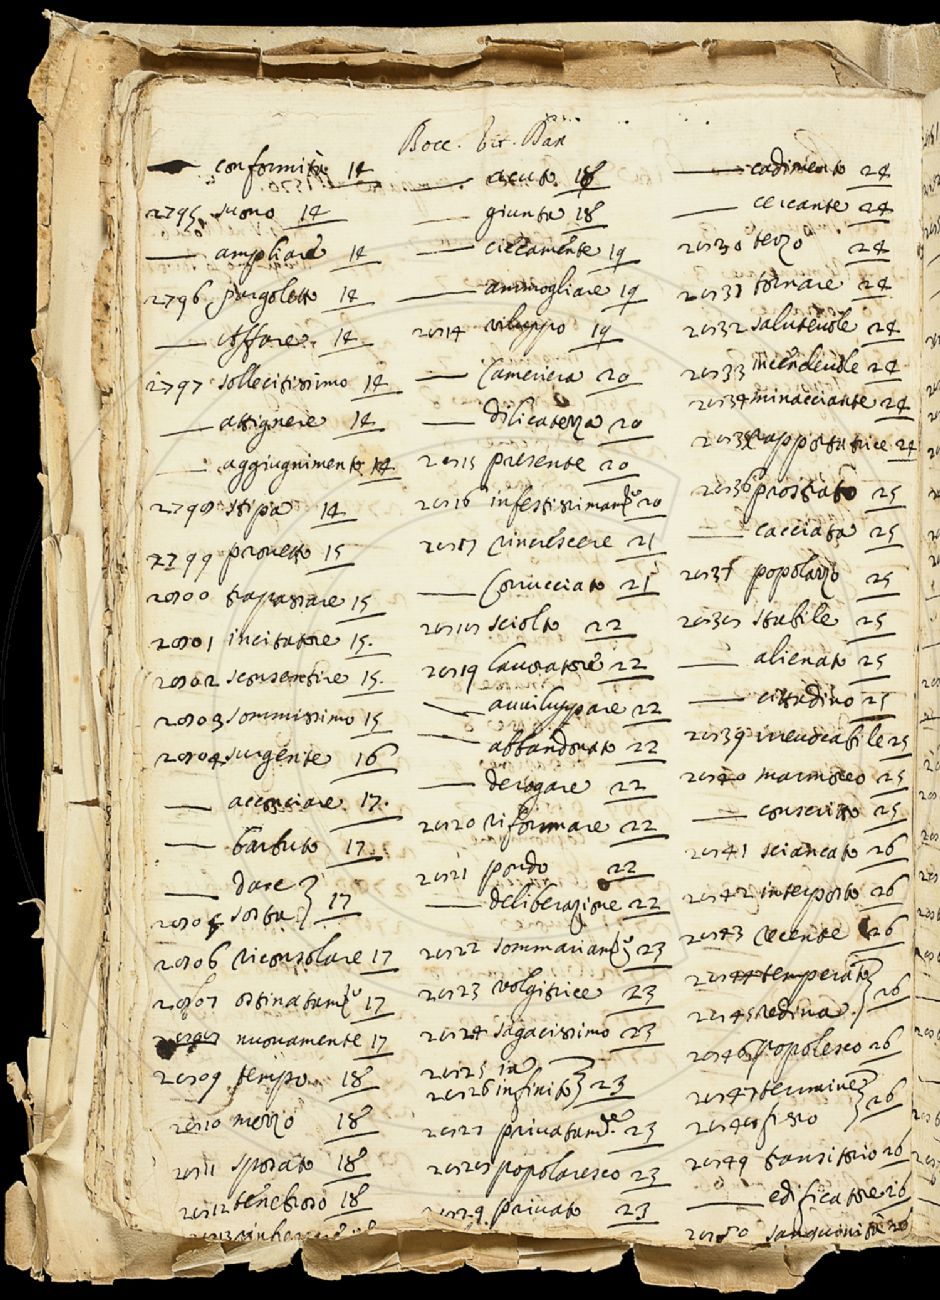 Bocc. Vit. Dan
— conformità 14
2795 suono 14
— ampliare 14
2796 pargoletto 14
— 14
2797 sollecitissimo 14
— attignere 14
— aggiugnimento 14
2798 stipa 14
2799 provetto 15
2800 trapassare 15
2801 incitatore 15.
2802 15.
2803 sommissimo 15
2804 surgente 16
— acconciare 17.
— barbuto 17
— dare } 17
2805 sorta
2806 riconsolare 17
2807 17
nuovamente 17
2809 tempo 18
2810 mezzo 18
2811 18
2812 tenebroso 18
2813
— acuto 18
— giunta 18
— ciecamente 19
— ammogliare 19
2814 viluppo 19
— Cameriera 20
— dilicatezza 20
2815 presente 20
2816 20
2817 rincrescere 21
— Corrucciato 21
2818 sciolto 22
2819 lavoratore 22
— avviluppare 22
— abbandonato 22
— derogare 22
2820 riformare 22
2821 pondo 22
— deliberazione 22
2822 23
2823 volgitrice 23
2824 sagacissimo 23
2825 in } 23
2826 infinito
2827 23
2828 popolaresco 23
2829 privato 23
— cadimento 24
— cercante 24
2830 terzo 24
2831 tornare 24
2832 salutevole 24
2833 incendevole 24
2834 minacciante 24
2835 rapportatrice 24
2836 prostrato 25
— cacciata 25
2837 popolazzo 25
2838 stabile 25
— alienato 25
— cittadino 25
2839 irrevocabile 25
2840 marmoreo 25
— conscritto 25
2841 sciancato 26
2842 interposto 26
2843 recente 26
2844 temperato } 26
2845 redina
2846 popolesco 26
2847 termine } 26
2848 fisso
2849 transitorio 26
— edificatore 26
2850